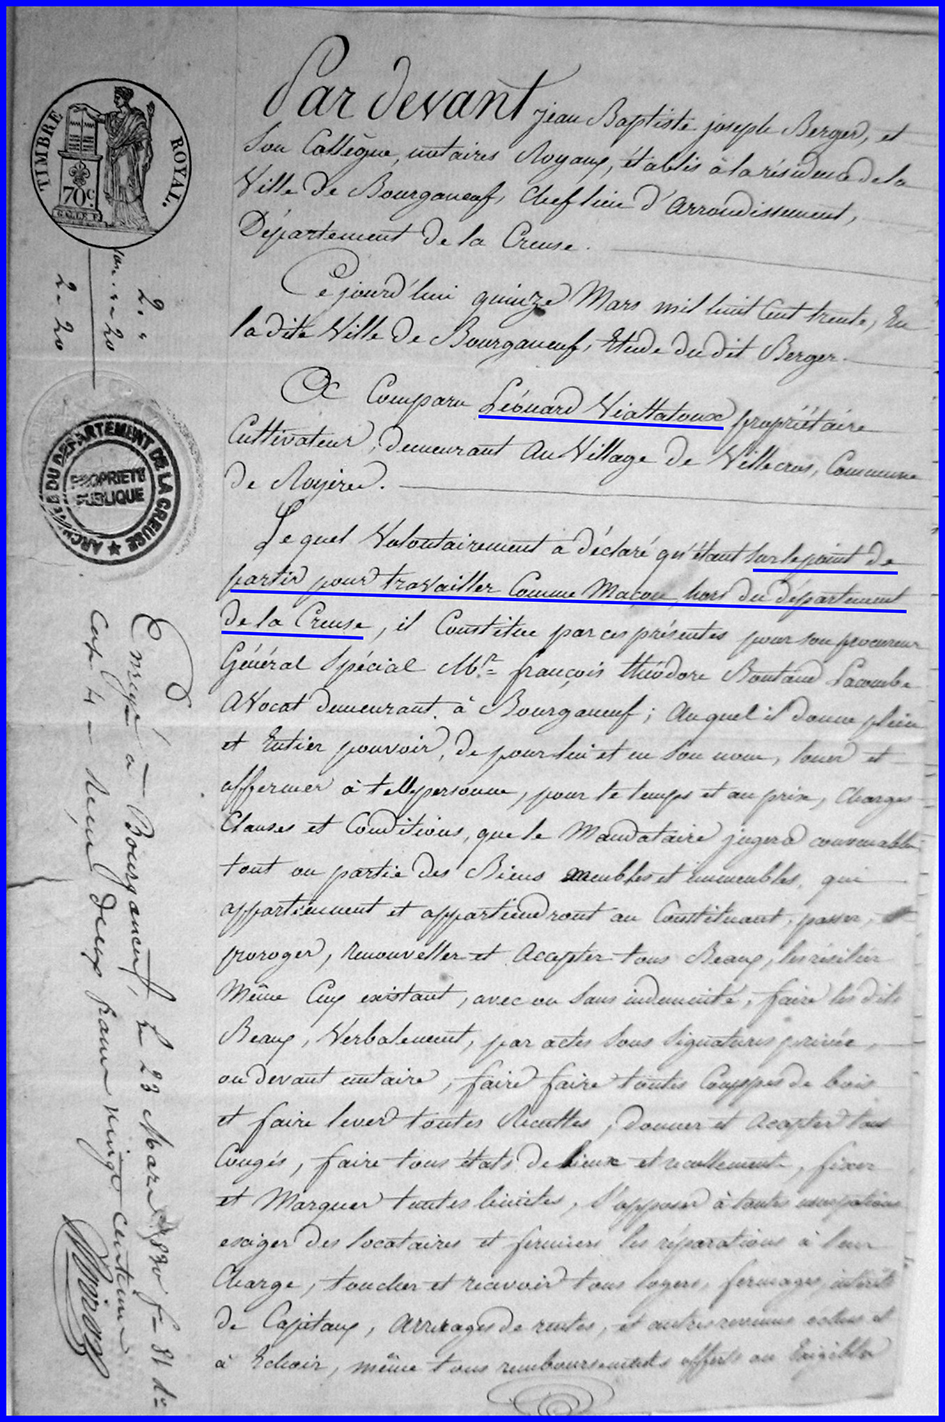 TIMBRE ROYAL.
70c
2. "
2 - 20
2 - 20
ARCHIVES DU DEPARTEMENT DE LA CREUSE
PROPRIETE
PUBLIQUE
Par devant jean Baptiste joseph Berger, et
Son Collègue, notaires Royaux, établis à la résidence de la
Ville de Bourganeuf, Chef lieu d'arrondissement,
Département de la Creuse.
Ce jourd'hui quinze Mars mil huit Cent trente, En
la dite Ville de Bourganeuf, Etude du dit Berger.
A Comparu Léonard Viallatoux propriétaire
Cultivateur, demeurant au Village de Villecros, Commune
de Royère.
Le quel Volontairement a déclaré qu'étant sur le point de
partir pour travailler Comme Maçon, hors du département
de la Creuse, il Constitue par ces présentes pour son procureur
Général Spécial Mr. françois théodore Boutaud Lacombe
Avocat demeurant à Bourganeuf; Auquel il donne plein
et Entier pouvoir, de pour lui et en Son nom, louer et
affermer à telle personne, pour le temps et au prix, Charges
Clauses et Conditions, que le Mandataire jugera convenables
tout ou partie des Biens meubles et immeubles, qui
appartiennent et appartiendront au Constituant, passer,
proroger, renouveller et Accepter tous Beaux, les résilier
Même Ceux existant, avec ou Sans indemnité, faire les dits
Beaux, Verbalement, par actes Sous Signatures privée,
ou devant notaire, faire faire toutes Couppes de bois
et faire lever toutes Récoltes, donner et Accepter tous
Congés, faire tous états de lieux et recollement, fixer
et Marquer toutes limites, S'opposer à toutes usurpations
exiger des locataires et fermiers les réparations à leur
Charge, toucher et recevoir tous loyers, fermages, intérêts
de Capitaux, Arrérages de rentes, et autres revenus echus et
à Echoir, même tous remboursements offerts ou Exigibles
Enregé à Bourganeuf, le 23 Mars 1830 fo 81 Vo
Case 4 - Reçu deux francs vingt centimes